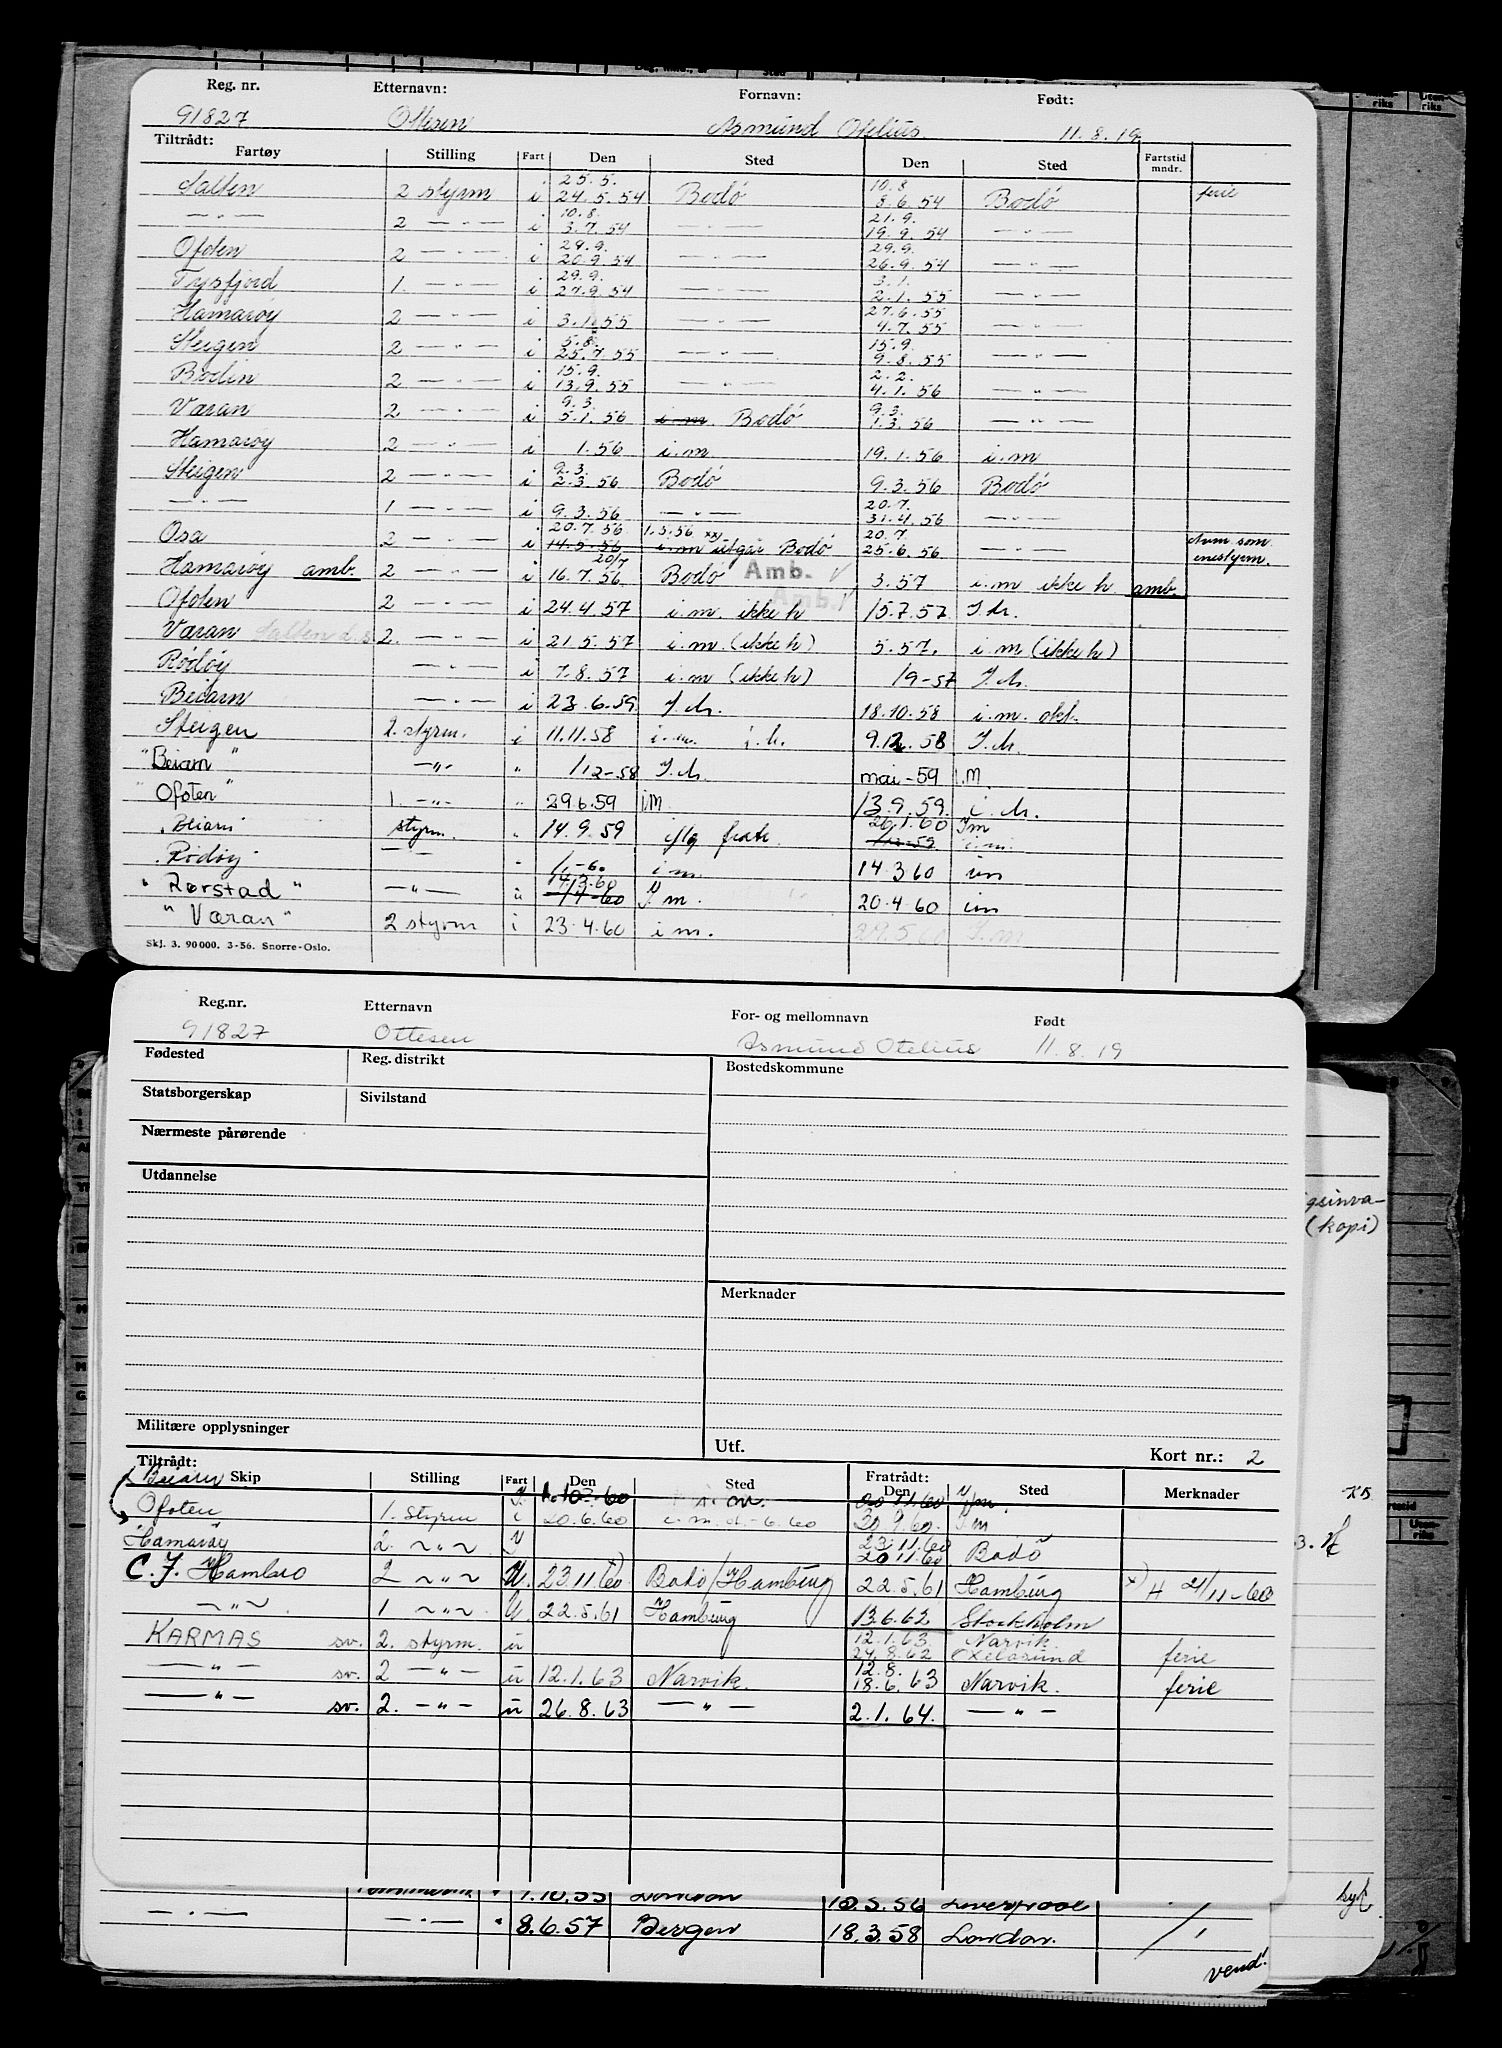 Reg. nr. Etternavn: Fornavn: Født:
91827 Ottesen Asmund Otelius. 11.8.19
Tiltrådt:
Fartøy Stilling Fart Den Sted Den Sted Fartstid mndr.
25.5. 10.8
Salten 2 styrm i 24.5.54 Bodö 8.6.54 Bodö ferie
10.8. 21.9.
— " — 2 — " — i 3.7.54 — " — 19.9.54 — " —
29.9. 29.9.
Ofoten 2 — " — i 20.9.54 — " — 26.9.54 — " —
29.9. 3.1.
Tysfjord 1. — " — i 27.9.54 — " — 2.1.55 — " —
27.6.55
Hamarøy 2 — " — i 3.1.55 — " — 4.7.55 — " —
5.8. 15.9.
Steigen 2 — " — i 25.7.55 — " — 9.8.55 — " —
15.9. 2.2.
Bodin 2 — " — i 13.9.55 — " — 4.1.56 — " —
9.3. 9.3.
Væran 2 — " — i 5.1.56 i.m. Bodö 1.3.56 — " —
Hamarøy 2 — " — i 1.56 i.m 19.1.56 i.m
9.3.
Steigen 2 — " — i 2.3.56 Bodö 9.3.56 Bodö
20.7.
— " — 1 — " — i 9.3.56 — " — 31.4.56 — " —
20.7.56 1.5.56 xx) 20.7.
Osa 2 — " — i 14.5.56 i.m utgår Bodö 25.6.56 — " — enestyrm.
20/7
Hamarøy amb. 2 — " — i 16.7.56 Bodö Amb. 3.57 i.m ikke h amb.
Amb.
Ofoten 2 — " — i 24.4.57 i.m. ikke h 15.7.57 I.M.
Væran Salten d.s 2. — " — i 21.5.57 i.m. (ikke h) 5.57. i.m (ikke h)
Rødøy — " — i 7.8.57 i.m (ikke h) 19-57 I.M.
Beiarn — " — i 23.6.59 I.M. 18.10.58 i.m. okt.
Steigen 2. styrm. i 11.11.58 i.m. 9.12.58 I.M.
"Beiarn" — " — " 1/12-58 I.M. mai-59 i.M
"Ofoten" 1. — " — " 29.6.59 i M 13.9.59. i.M.
26.1.60 I m
"Beiarn" styrm. " 14.9.59 iflg fratr. 1/12-59 i.m.
"Rödöy" — " — 1/1-60 i.m. 14.3.60 im
14/3.60
"Rørstad" — " — " I m. 20.4.60 im
"Væran" 2 styrm i 23.4.60 i m. 29.5.60 I.m
Skj. 3. 90 000. 3-56. Snorre-Oslo.
Reg.nr. Etternavn For- og mellomnavn Født
91827 Ottesen Asmund Otelius 11.8.19
Fødested Reg. distrikt Bostedskommune
Statsborgerskap Sivilstand
Nærmeste pårørende
Utdannelse
gsinva-
(kopi)
Merknader
Militære opplysninger
Utf. Kort nr.: 2
Tiltrådt: Fratrådt:
Beiarn Skip Stilling Fart Den Sted Den Sted Merknader
10.60 i.m. 20.11.60 I/m.
Ofoten 1. Styrm i 20.6.60 i.m. d.-6.60 30.9.60. I m
23.11.60
Hamarøy 2. ~ " ~ 20 11.60 Bodö
C. J. Hambro 2 ~ " ~ U. 23.11.60 x) Bodö/Hamburg 22.5.61 Hamburg x) H 21/11-60
~ " ~ 1 ~ " ~ U. 22.5.61 Hamburg 13.6.62 Stockholm
12.1.63. Narvik.
KARMAS sv. 2. styrm. u 24.8.62 Oxelösund ferie
12.8.
— " — sv. 2 — " — u 12.1.63 Narvik. 18.6.63 Narvik. ferie
— " — sv. 2. — " — u 26.8.63 — " — 2.1.64. — " —
1.10.55 London 10.5.56 Liverpool
— " — — " — " 8.6.57 Bergen 18.3.58 London.
vend!